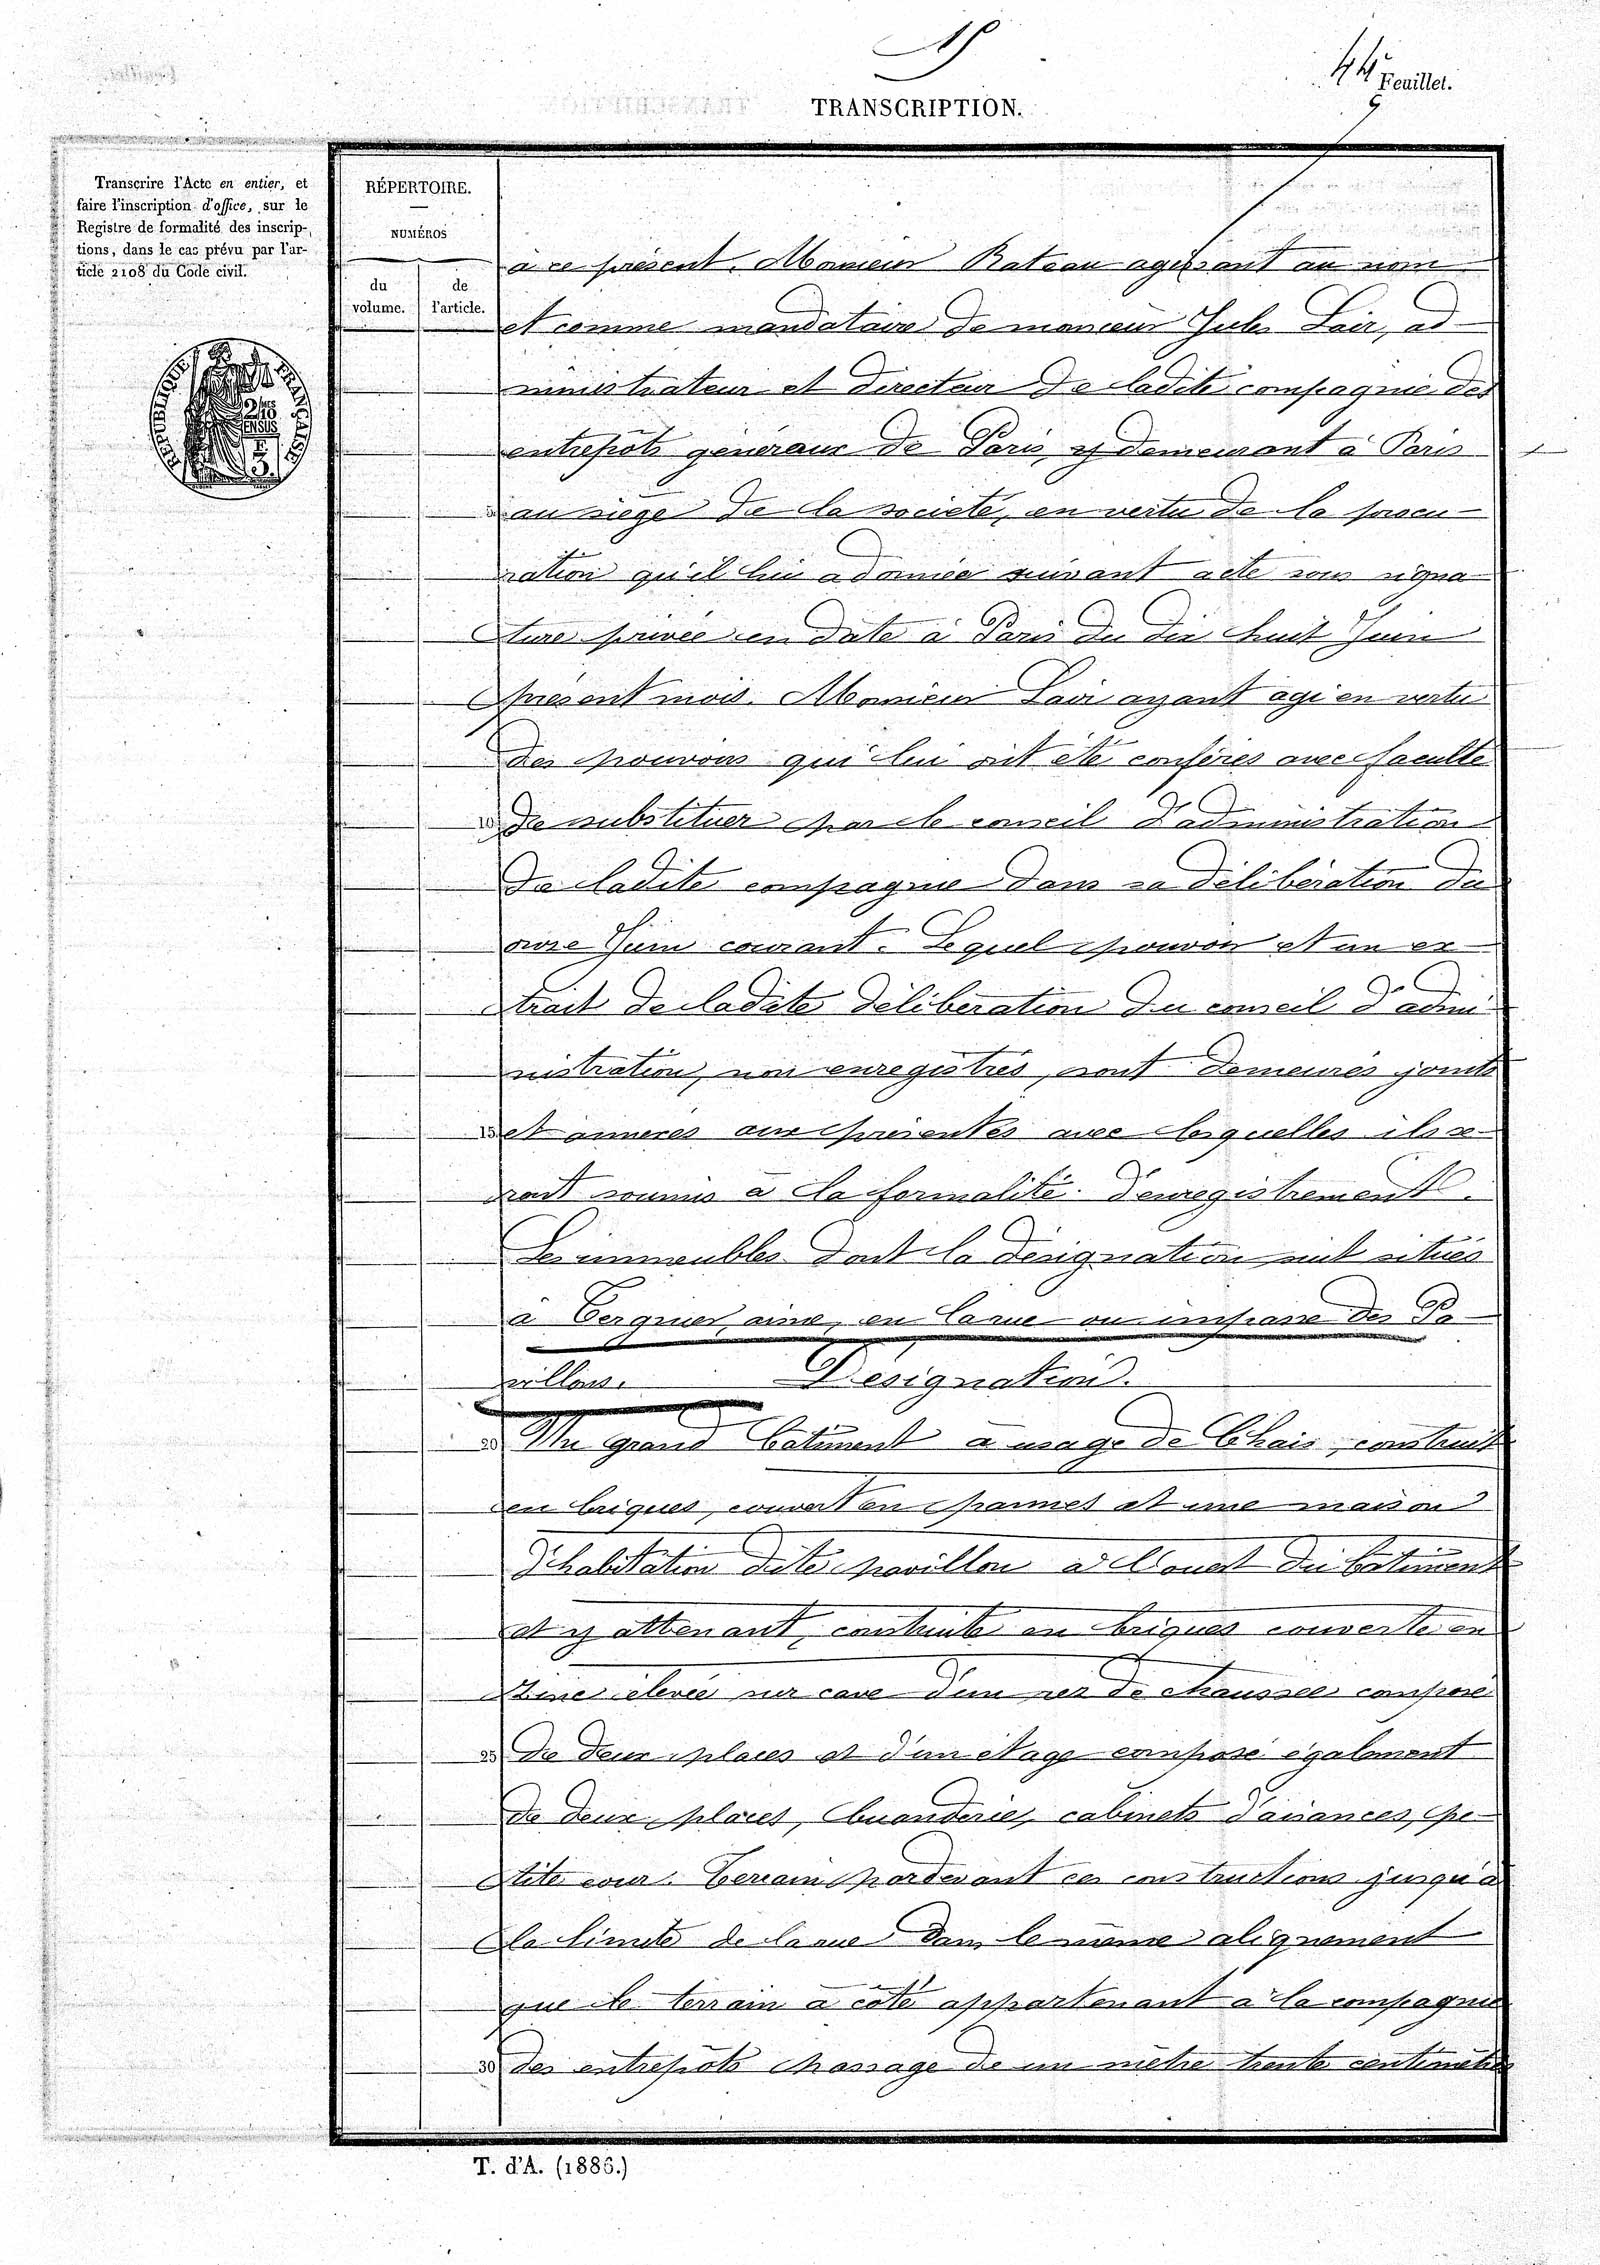 44e Feuillet.
TRANSCRIPTION.
Transcrire l'Acte en entier, et
faire l'inscription d'office, sur le
Registre de formalité des inscrip-
tions, dans le cas prévu par l'ar-
ticle 2108 du Code civil.
RÉPERTOIRE.
NUMÉROS
du
volume.
de
l'article.
à ce présent. Monsieur Rateau agissant au nom
et comme mandataire de monsieur Jules Lair, ad-
ministrateur et directeur de ladite compagnie des
entrepôts généraux de Paris, y demeurant à Paris
au siège de la société, en vertu de la procu-
ration qu'il lui a donnée suivant acte sous signa-
ture privée en date à Paris du dix huit Juin
présent mois. Monsieur Lair ayant agi en vertu
des pouvoirs qui lui ont été conférés avec faculté
10 de substituer par le conseil d'administration
de ladite compagnie dans sa délibération du
onze Juin courant. Lequel pouvoir et un ex-
trait de ladite délibération du conseil d'admi-
nistration, non enregistrés, sont demeurés joints
15 et annexés aux présentes avec lesquelles ils se-
ront soumis à la formalité d'enregistrement.
Les immeubles dont la désignation suit situés
à Tergnier, aisne, en la rue ou impasse des Pa-
villons. Désignation.
20 Un grand bâtiment à usage de Chais, construit
en briques, couvert en pannes et une maison
d'habitation dite pavillon à l'ouest du bâtiment
et y attenant, construite en briques couverte en
zinc élevée sur cave d'un rez de chaussée composé
25 de deux places et d'un étage composé également
de deux places, buanderie, cabinets d'aisances, pe-
tite cour. Terrain pardevant ces constructions jusqu'à
la limite de la rue dans le même alignement
que le terrain à côté appartenant à la compagnie
30 des entrepôts passage de un mètre trente centimètres
T. d'A. (1886.)